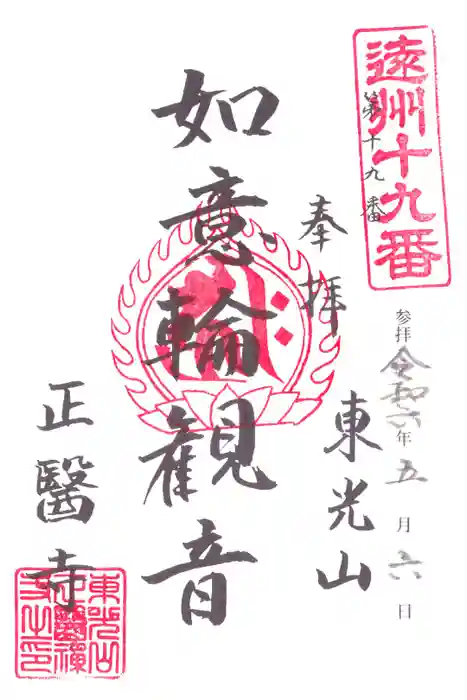 遠州十九番
第十九番
参拝 令和六年五月六日
奉拝
東光山
如意輪観音
正醫寺